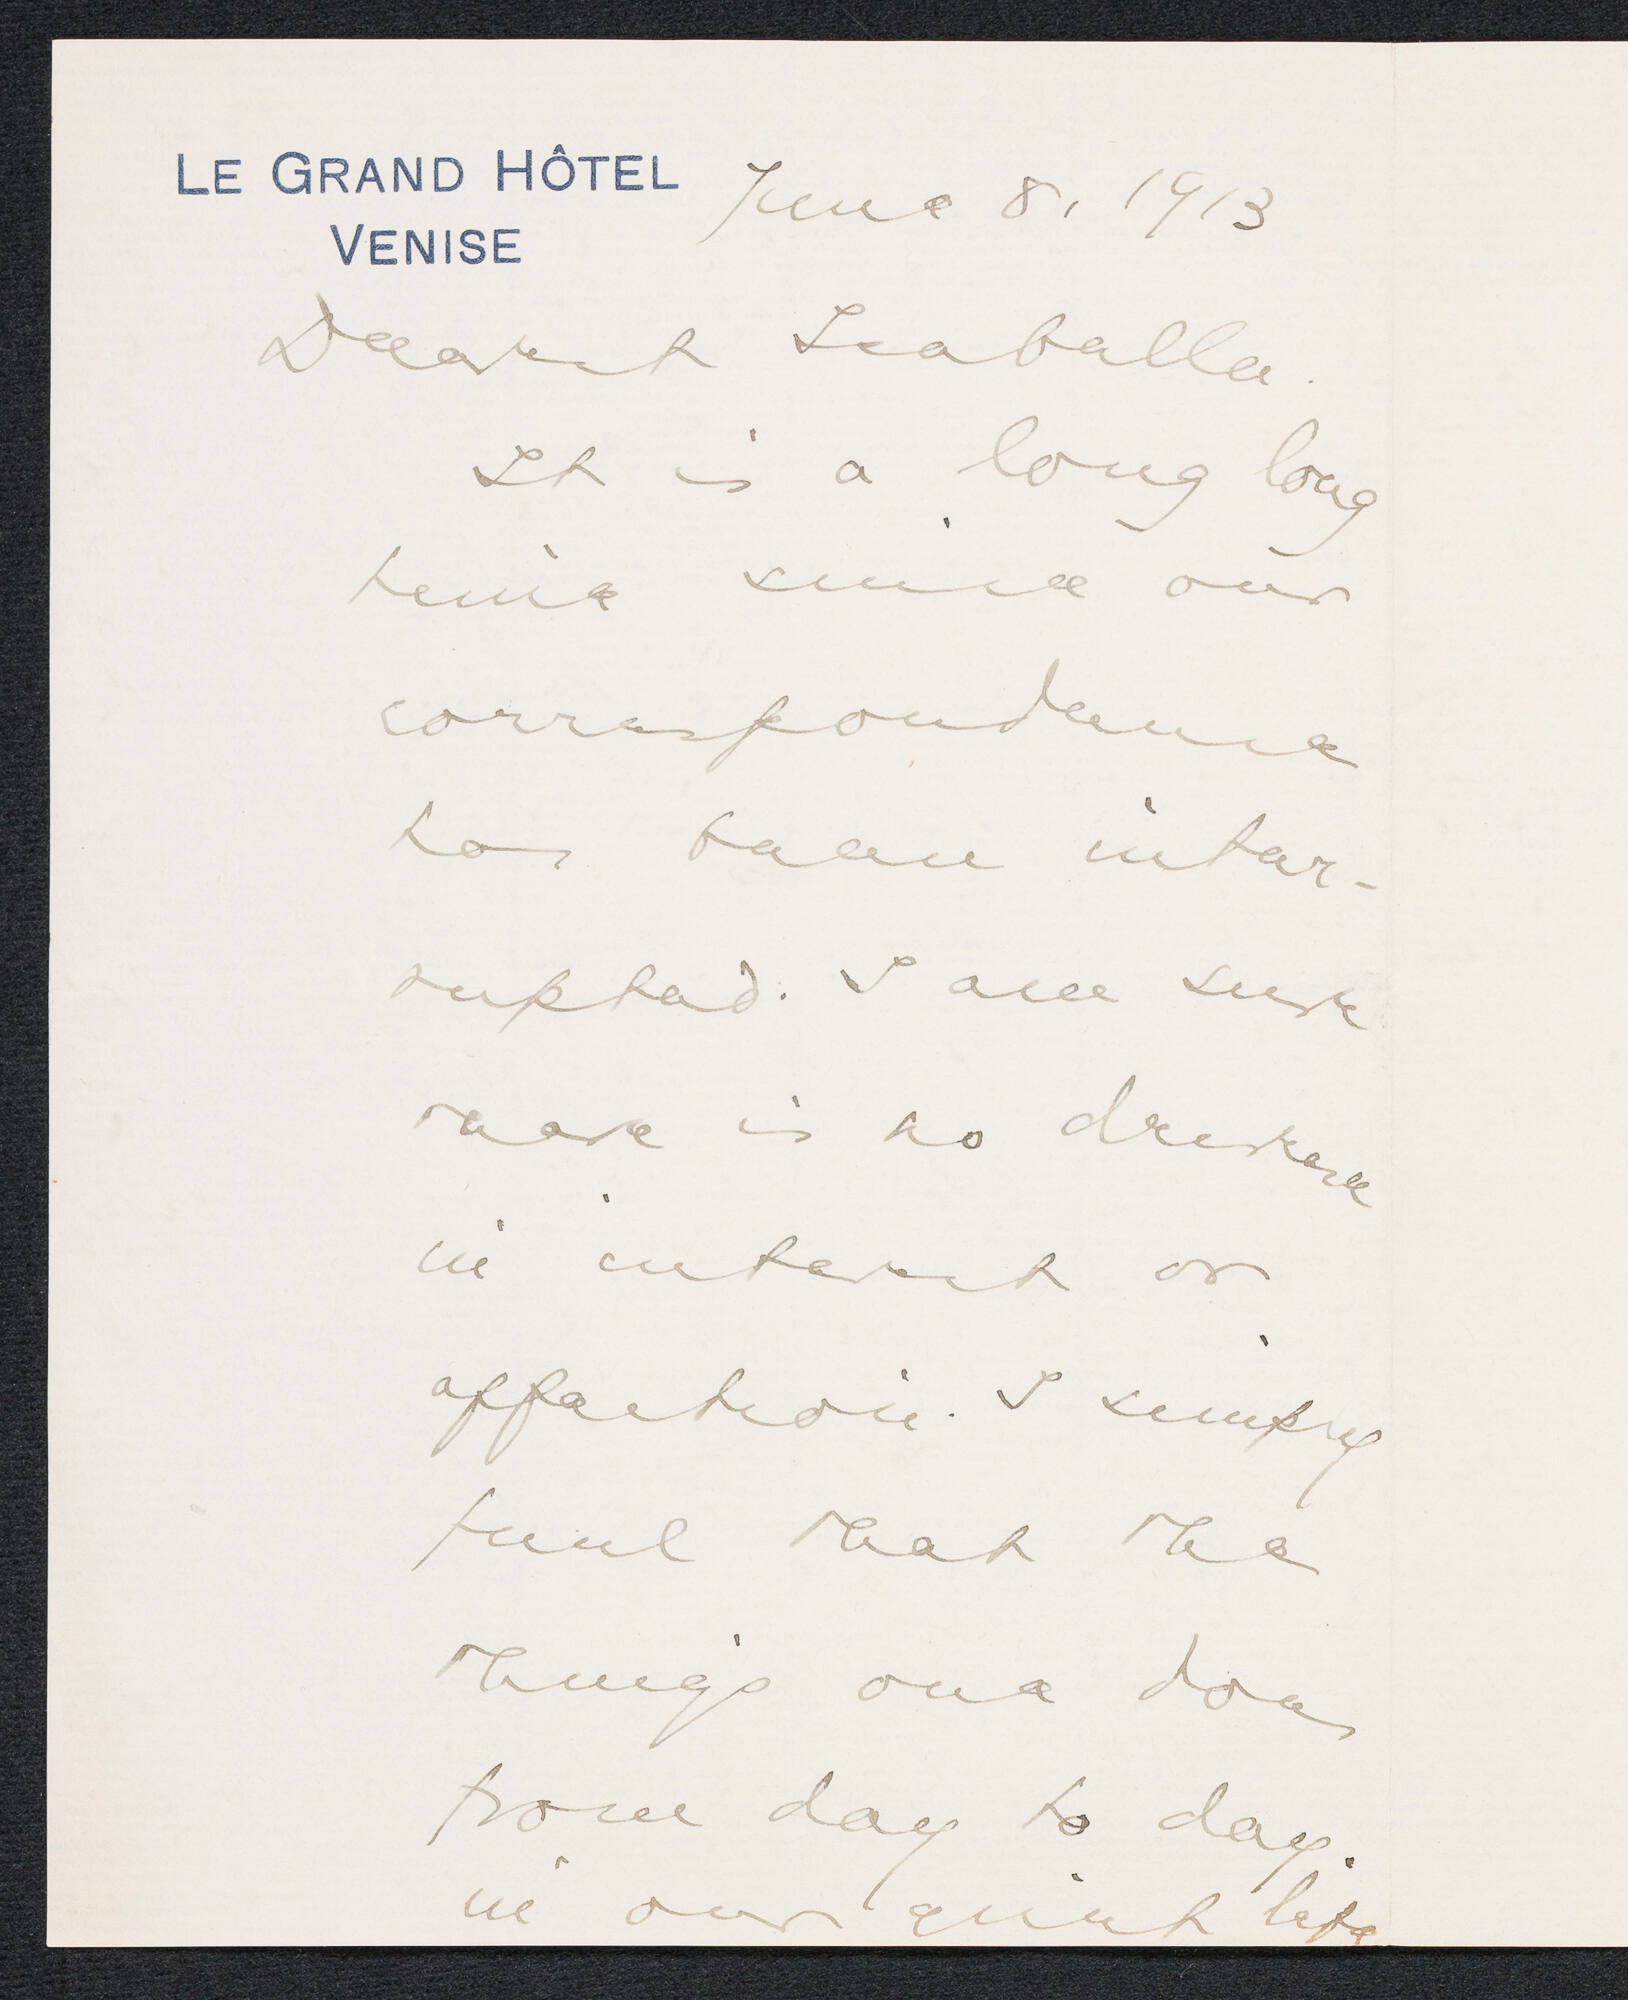 LE GRAND HÔTEL
VENISE
June 8, 1913
Dearest Isabella.
It is a long long
time since our
correspondence
has been inter-
rupted. I am sure
there is no decrease
in interest or
affection. I simply
feel that the
things one does
from day to day
in our quiet life